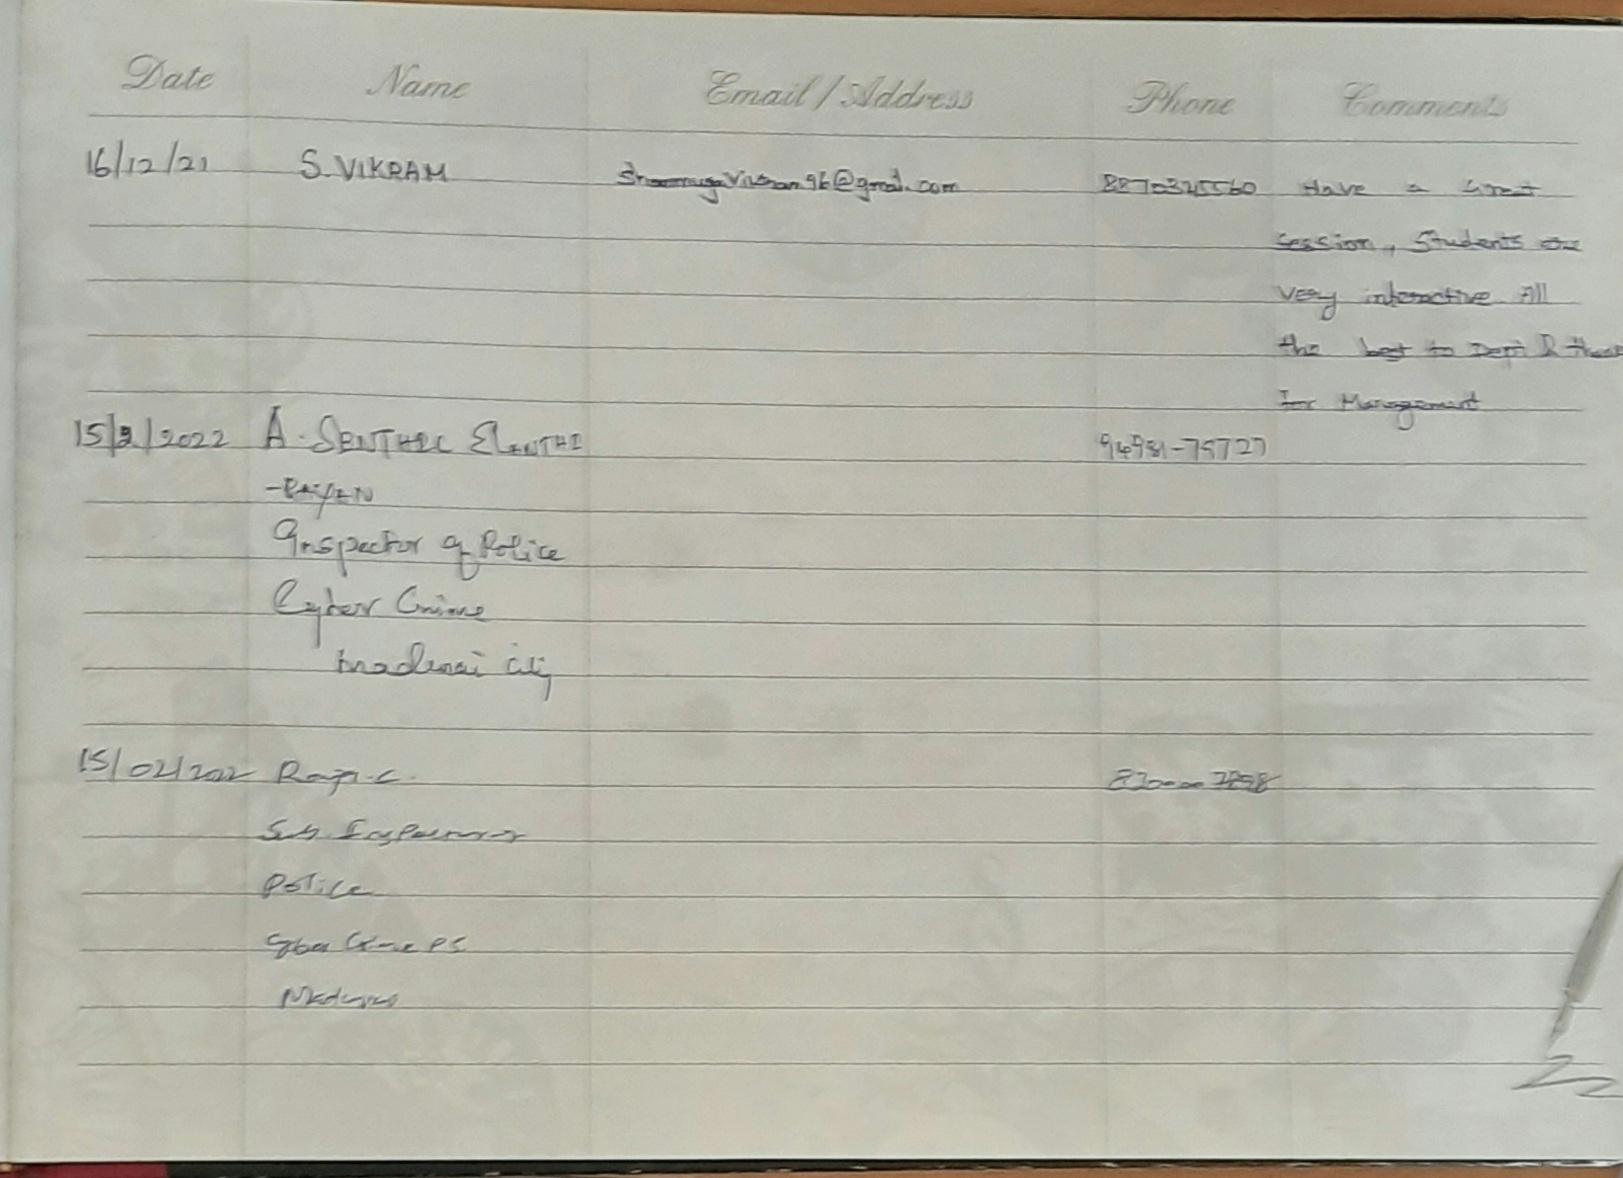 Date Name Email / Address Phone Comments
16/12/21 S. VIKRAM 8870345560 Have a Great
session, Students are
very interactive All
the best to Dept & thank
for Management
15/2/2022 A. SENTHIL ELANTHI 94981-75727
-RAIYAN
Inspector of Police
Cyber Crime
Madurai City
15/02/2022 Raja. C.
Sub Inspector
Police
Cyber Crime PS
Madurai